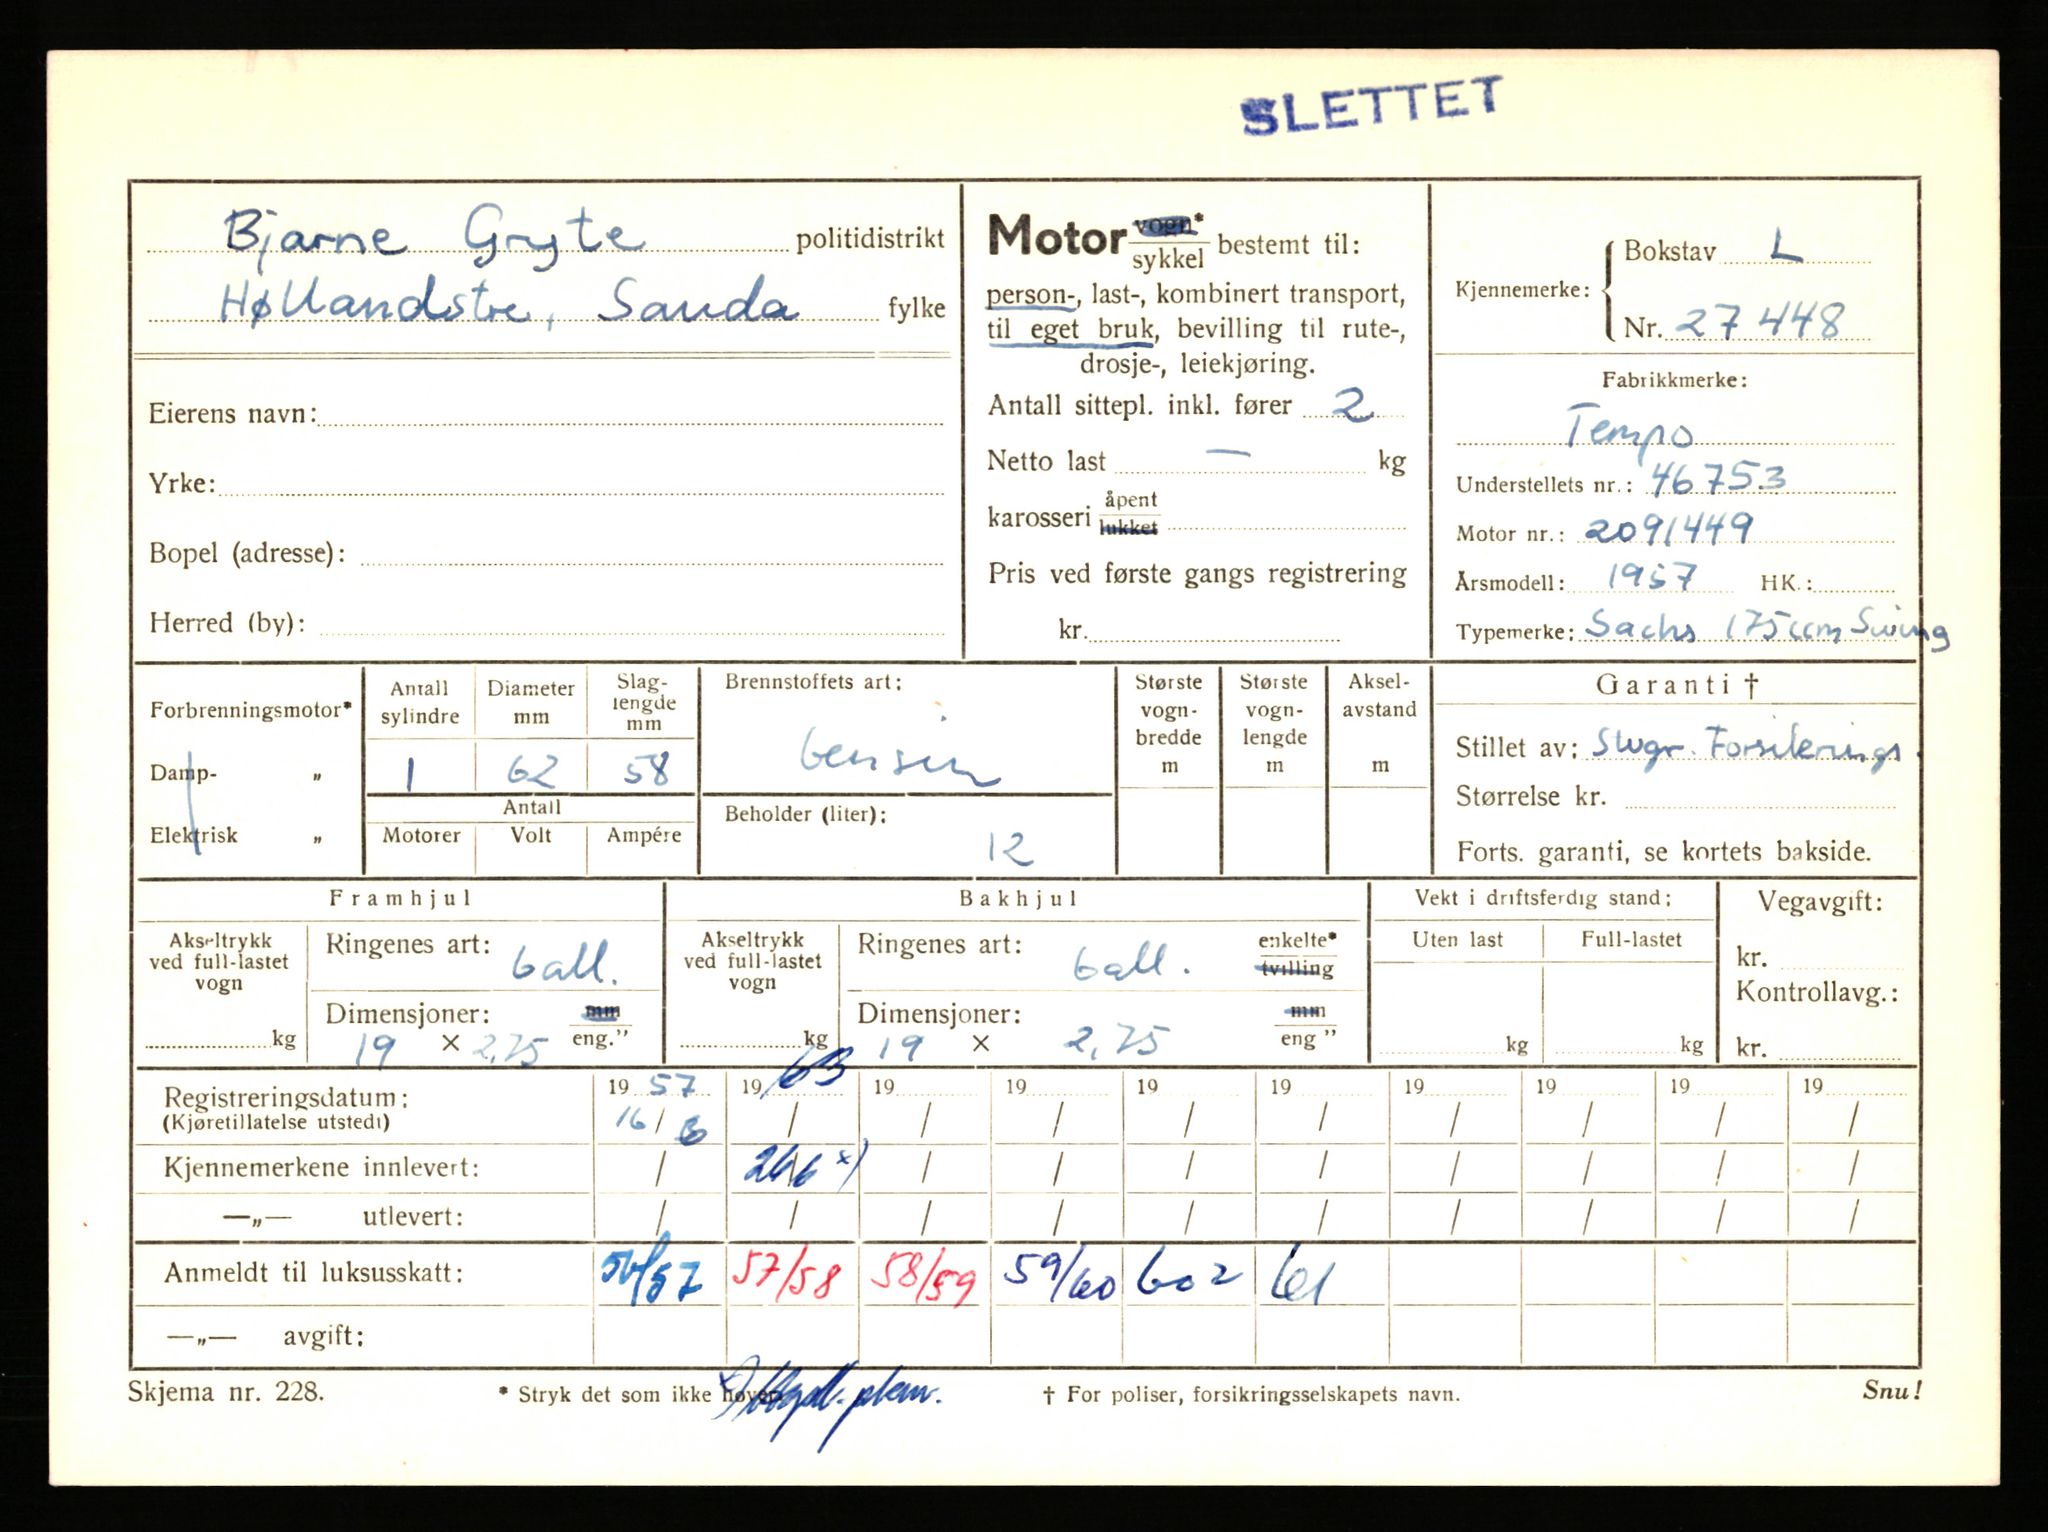 SLETTET
Bjarne Gryte politidistrikt
Høllandstre, Sauda fylke
Eierens navn:
Yrke:
Bopel (adresse):
Herred (by):
Motor vogn* / sykkel bestemt til:
person-, last-, kombinert transport,
til eget bruk, bevilling til rute-,
drosje-, leiekjøring.
Antall sittepl. inkl. fører 2
Netto last — kg
karosseri åpent / lukket
Pris ved første gangs registrering
kr.
Kjennemerke: Bokstav L
Nr. 27448
Fabrikkmerke:
Tempo
Understellets nr.: 46753
Motor nr.: 2091449
Årsmodell: 1957 HK.:
Typemerke: Sachs 175 ccm Swing
Forbrenningsmotor*
Damp- „
Elektrisk „
Antall sylindre Diameter mm Slag-lengde mm
1 62 58
Antall
Motorer Volt Ampére
Brennstoffets art:
bensin
Beholder (liter):
12
Største vogn-bredde m
Største vogn-lengde m
Aksel-avstand m
Garanti †
Stillet av: Forsikrings
Størrelse kr.
Forts. garanti, se kortets bakside.
Framhjul
Akseltrykk ved full-lastet vogn
kg
Ringenes art: ball.
Dimensjoner: mm / eng.”
19 × 2,75
Bakhjul
Akseltrykk ved full-lastet vogn
kg
Ringenes art: ball. enkelte* / tvilling
Dimensjoner: mm / eng ”
19 × 2,75
Vekt i driftsferdig stand:
Uten last Full-lastet
kg kg
Vegavgift:
kr.
Kontrollavg.:
kr.
Registreringsdatum: 19 57 19 63 19 19 19 19 19 19 19 19
(Kjøretillatelse utstedt) 16 / 8 / / / / / / / / /
Kjennemerkene innlevert: / 26/6 x) / / / / / / / /
—„— utlevert: / / / / / / / / / /
Anmeldt til luksusskatt: 56/57 57/58 58/59 59/60 602 61
—„— avgift:
Skjema nr. 228. * Stryk det som ikke høver. † For poliser, forsikringsselskapets navn. Snu!